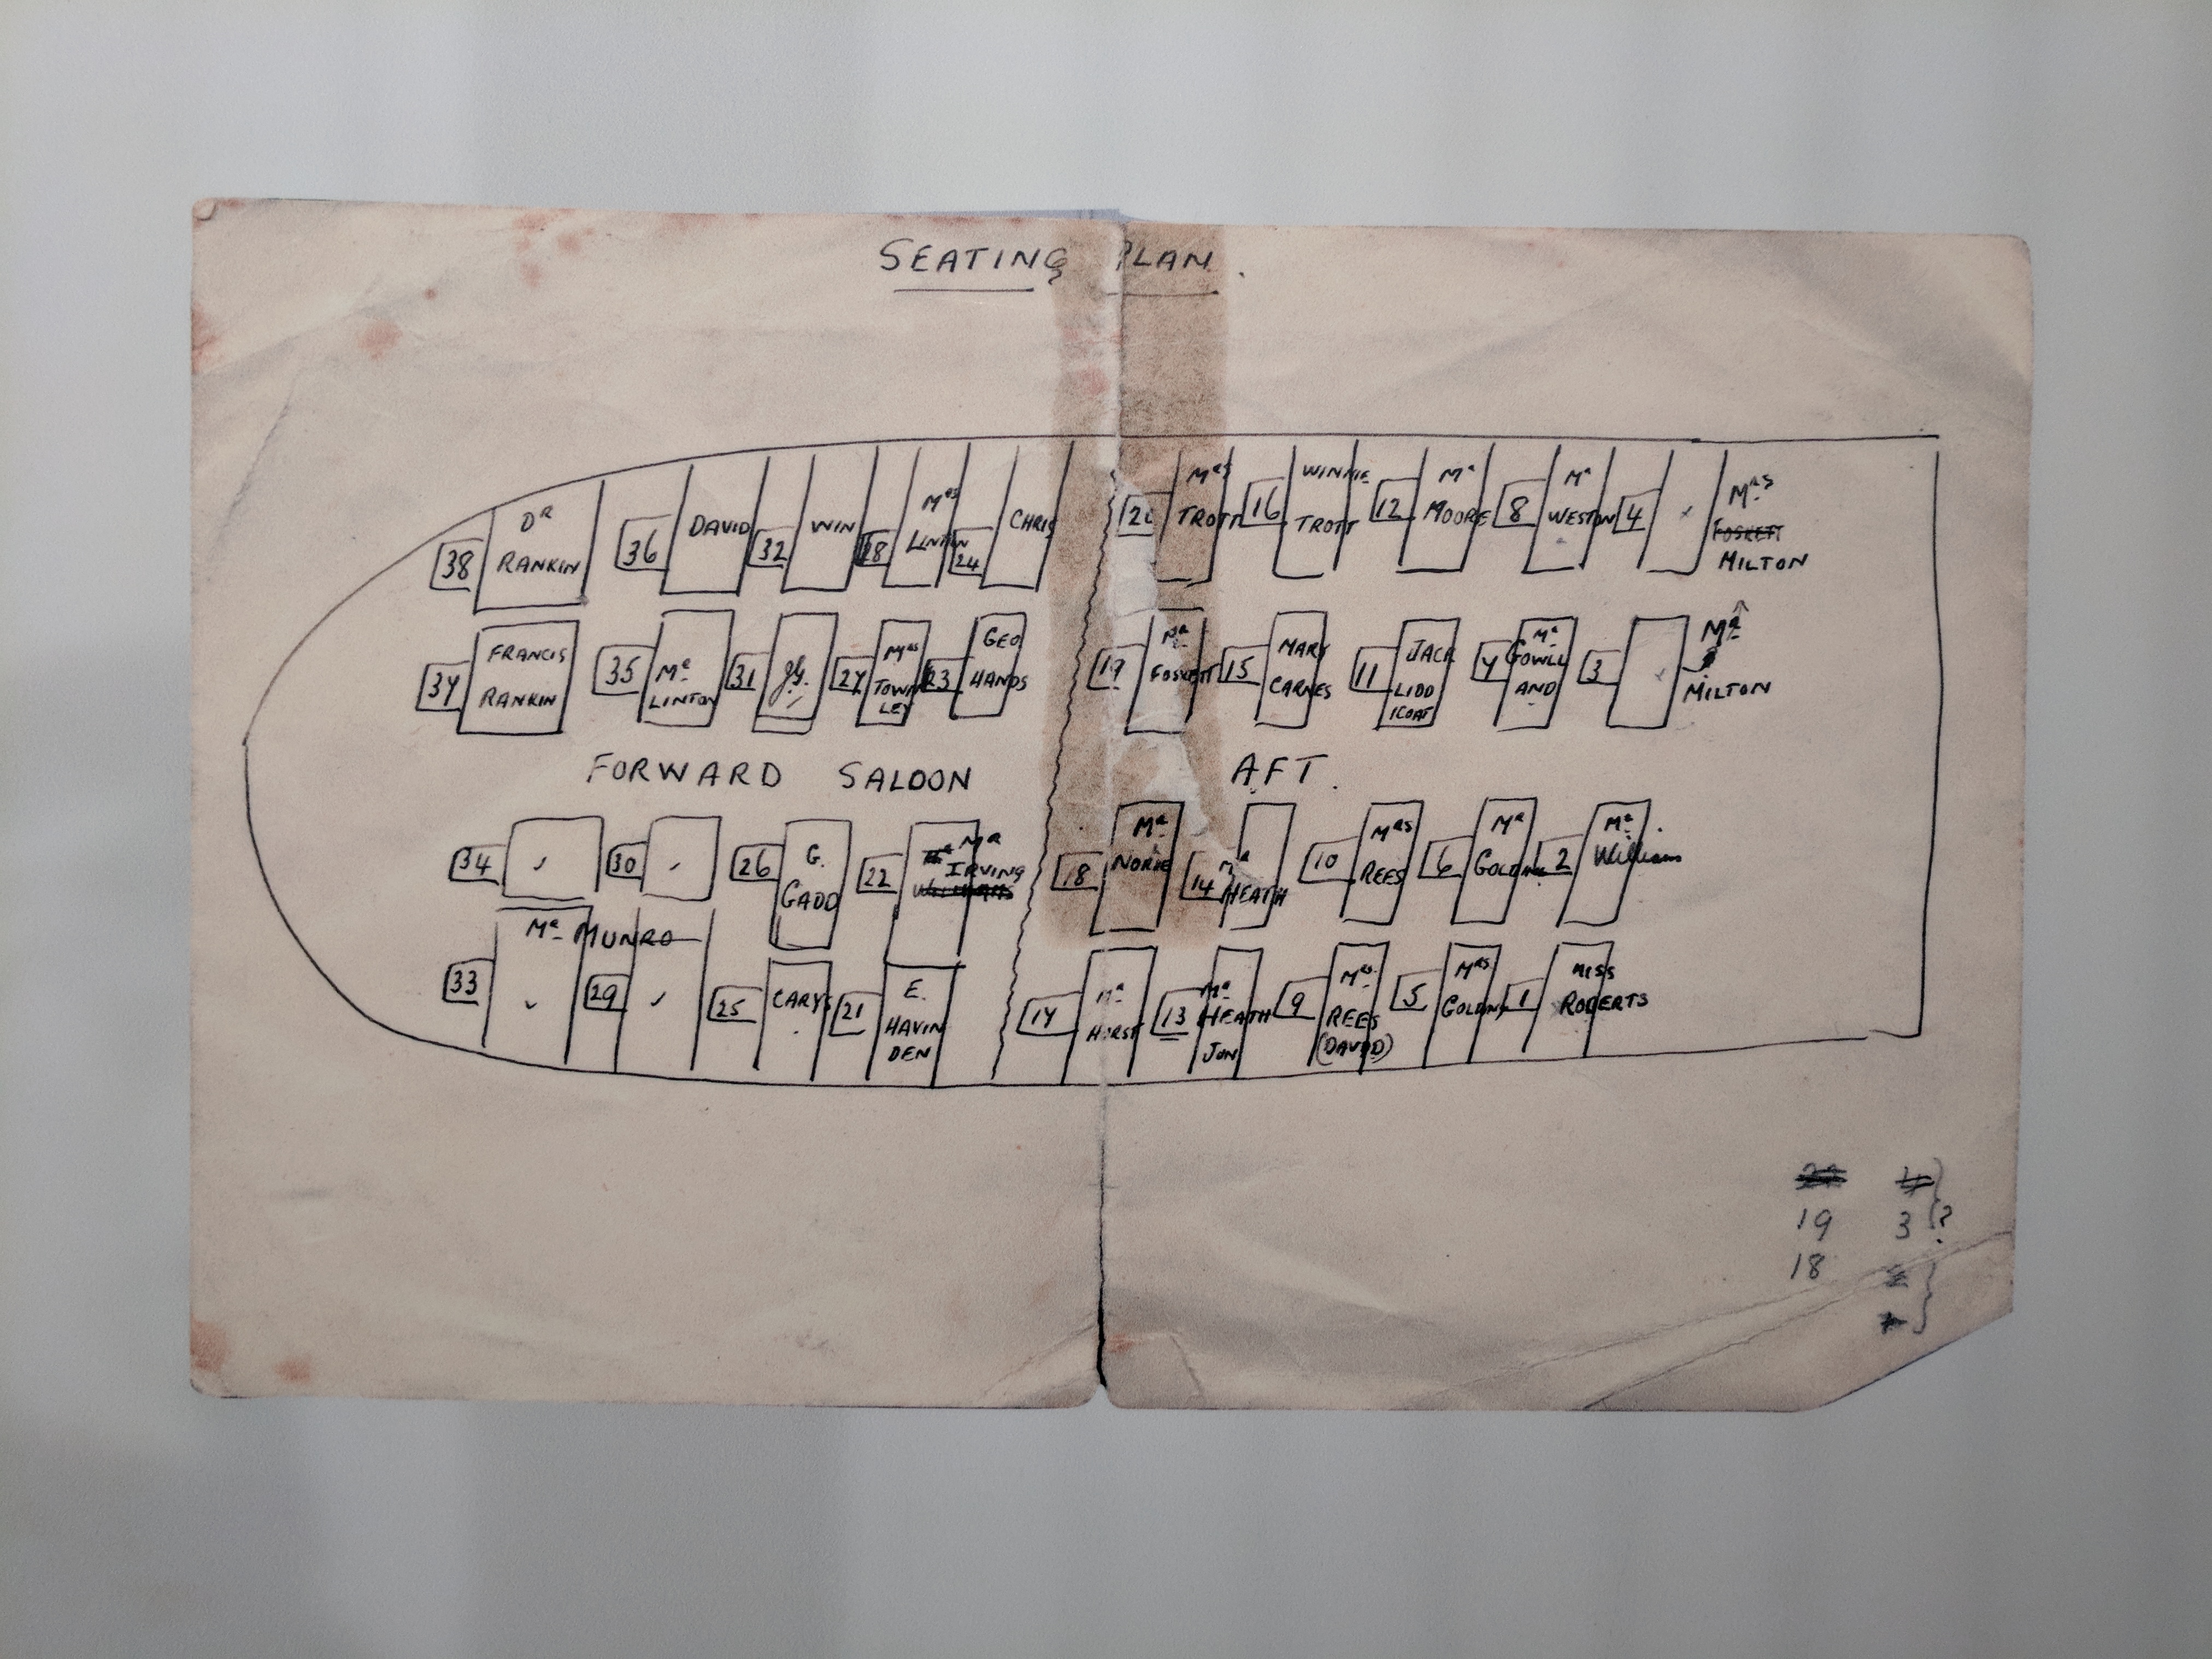 SEATING PLAN.
38 DR RANKIN
36 DAVID
32 WIN
28 MRS LINTON
24 CHRIS
20 MRS TROTT
16 WINNIE TROTT
12 MR MOORE
8 MR WESTON
4
MRS FOSKETT MILTON
37 FRANCIS RANKIN
35 MR LINTON
31
27 MRS TOWN LEY
23 GEO HANDS
19 MR FOSKETT
15 MARY CARNES
11 JACK LIDD ICOAT
7 MR GOWLL AND
3
MR MILTON
FORWARD SALOON
AFT.
34
30
26 G. GADD
22 MR IRVING
18 MR NORIE
14 MR HEATH
10 MRS REES
6 MR GOLDNY
2 MR Williams
MR MUNRO
33
29
25 CARYS
21 E. HAVIN DEN
17 MR HIRST
13 MR HEATH JUN
9 MRS REES (DAVID)
5 MRS GOLDNY
1 MISS ROBERTS
19 3 ?
18